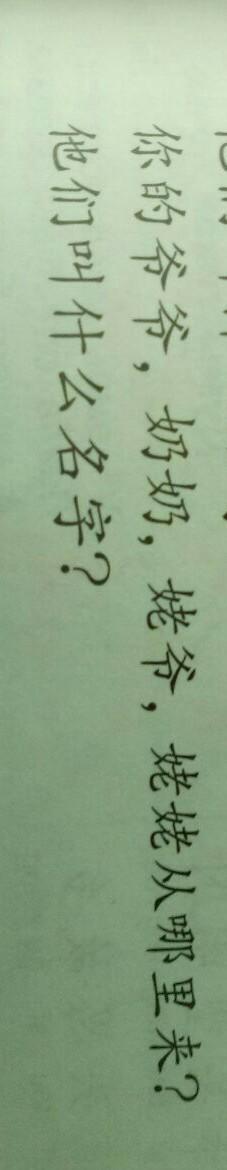 你的爷爷，奶奶，姥爷，姥姥从哪里来？
他们叫什么名字？